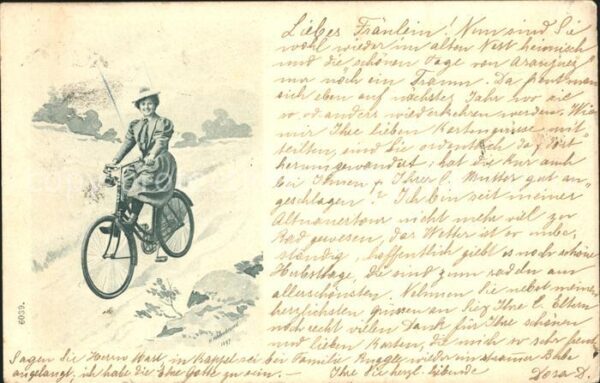 Liebes Fräulein! Nun sind Sie
wohl wieder im alten Nest heimisch
und die schönen Tage von Aranjuez
nur noch ein Traum. Da freut man
sich eben auf nächstes Jahr wo sie
so od. anders wiederkehren werden. Wie
mir Ihre lieben Kartengrüsse mit
teilten, sind Sie ordentlich da, dort
herumgewandert; hat die Kur auch
bei Ihnen & Ihrer l. Mutter gut an-
geschlagen? Ich bin seit meiner
Altmauertour nicht mehr viel zu
Rad gewesen, das Wetter ist so unbe-
ständig, hoffentlich giebt es noch schöne
Herbsttage, die sind zum radeln am
allerschönsten. Nehmen Sie nebst meinen
herzlichsten Grüssen an Sie, Ihre l. Eltern
noch recht vielen Dank für Ihre schönen
und lieben Karten, die mich so sehr freuten
Sagen Sie Herrn in Kappel sei bei Familie Rugger wieder ein strammer Bube
angelangt, ich habe die Ehre Gotte zu sein. — Ihre Sie herzl. liebende
Dora D.
6039.
1897